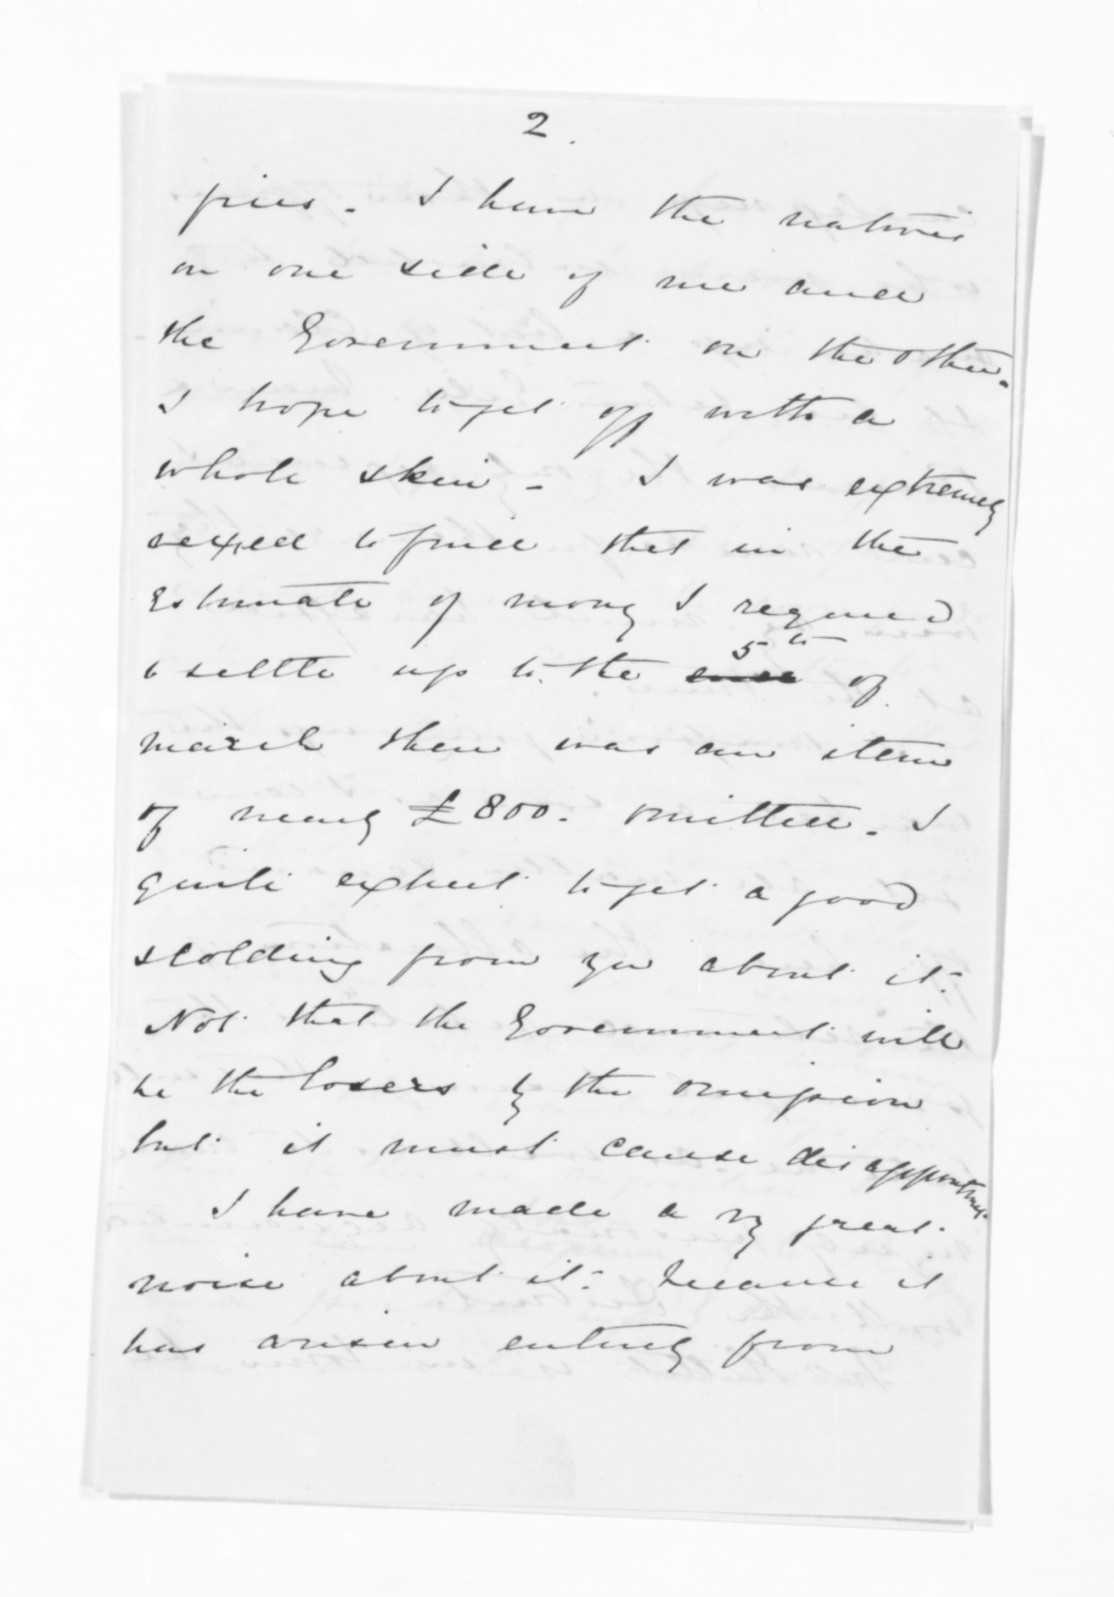 2.
fires. I have the natives
on one side of me and
the Government on the other.
I hope to get off with a
whole skin - I was extremely
vexed to find that in the
Estimate of money I required
to settle up to the 5th of
march there was an item
of nearly £800. omitted. I
quite expect to get a good
scolding from you about it.
Not that the Government will
be the losers by the omission
but it must cause disappointment
I have made a vy great
noise about it. because it
has arisen entirely from